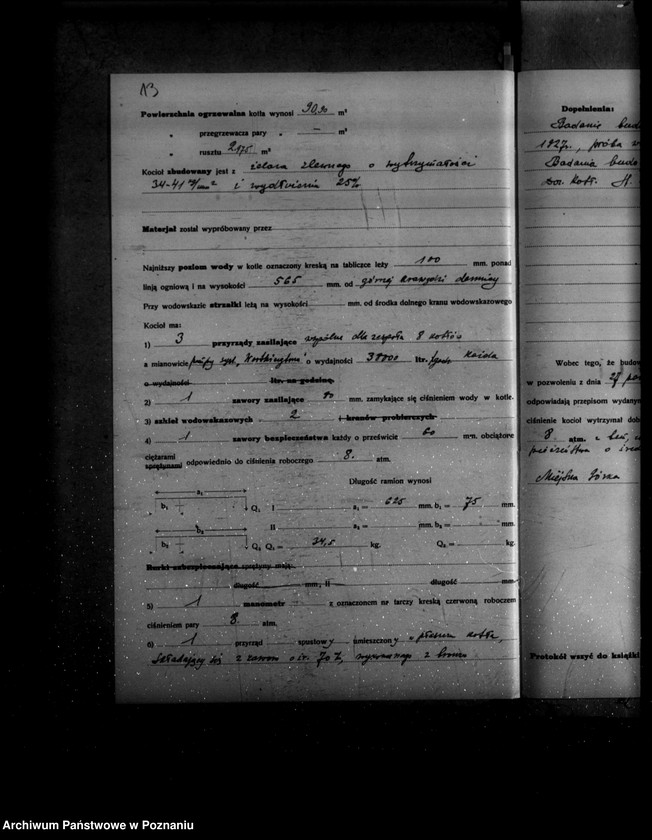 13
Powierzchnia ogrzewalna kotła wynosi 90,90 m²
" przegrzewacza pary " — m²
" rusztu 2,175 m²
Kocioł zbudowany jest z żelaza zlewnego o wytrzymałości
34-41 kg/mm² i wydłużeniu 25%
Materjał został wypróbowany przez
Najniższy poziom wody w kotle oznaczony kreską na tabliczce leży 100 mm. ponad
linją ogniową i na wysokości 565 mm. od górnej krawędzi dennicy
Przy wodowskazie strzałki leżą na wysokości mm. od środka dolnego kranu wodowskazowego
Kocioł ma:
1) 3 przyrządy zasilające wspólne dla zespołu 8 kotłów
a mianowicie pompy syst. „Worthington" o wydajności 31000 ltr. /godz. każda
o wydajności ltr. na godzinę.
2) 1 sawory zasilające 80 mm. zamykające się ciśnieniem wody w kotle.
3) szkieł wodowskazowych 2 i kranów probierczych
4) 1 sawory bezpieczeństwa każdy o prześwicie 60 m·n. obciążone
ciężarami
sprężynami odpowiednio do ciśnienia roboczego 8. atm.
Długość ramion wynosi
a₁
b₁ Q₁ I a₁ = 625 mm. b₁ = 75 mm.
b₂ II a₂ = mm. b₂ = mm.
b₂ Q₂ Q₁ = 34,5 kg. Q₂ = kg.
Rurki zabezpieczające sprężyny mają:
długość mm, II długość mm
5) 1 manometr z oznaczonem nr tarczy kreską czerwoną roboczem
ciśnieniem pary 8. atm.
6) 1 przyrząd spustowy umieszczony w płaszczu kotła,
składający się z zaworu o śr. 70 z brązu
Dopełnienia:
Badanie
1927r., próba
Badania
H.
Wobec tego, że budow
w pozwoleniu z dnia 28
odpowiadają przepisom wydany
ciśnienie kocioł wytrzymał dob
8 atm. z
Miejska Górka
Protokół wszyć do książki
Archiwum Państwowe w Poznaniu